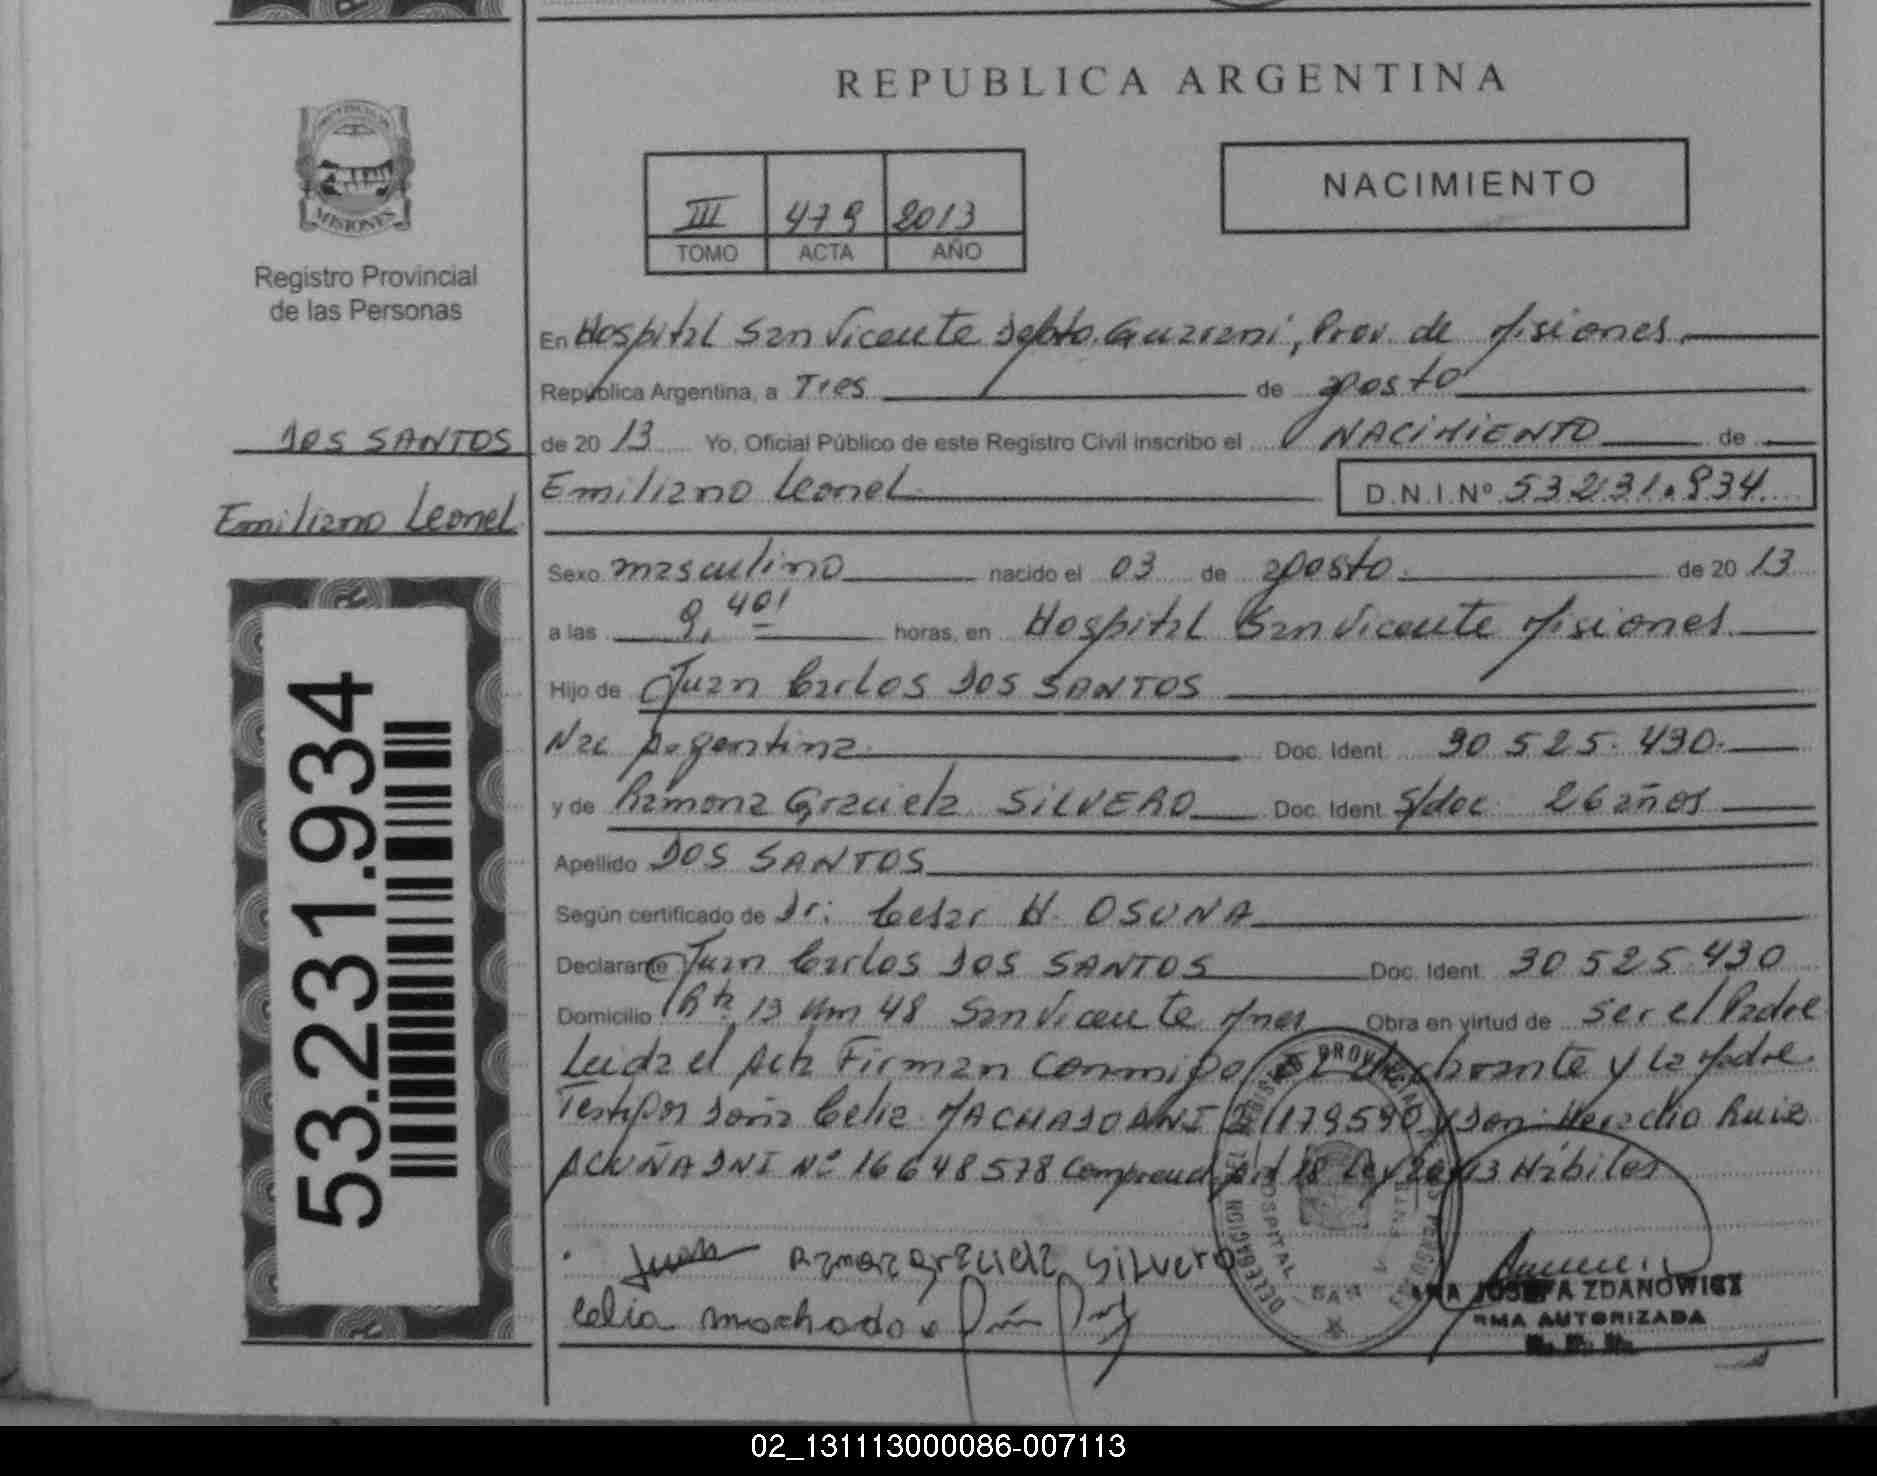 REPUBLICA ARGENTINA
PROVINCIA DE
MISIONES
Registro Provincial
de las Personas
III 479 2013
TOMO ACTA AÑO
NACIMIENTO
En Hospital San Vicente Depto. Guarani, Prov. de Misiones
República Argentina, a Tres de agosto
DOS SANTOS
de 20 13 Yo, Oficial Público de este Registro Civil inscribo el NACIMIENTO de
Emiliano Leonel
Emiliano Leonel D.N.I.Nº 53.231.934
Sexo masculino nacido el 03 de agosto de 20 13
a las 9,40' horas, en Hospital San Vicente Misiones
Hijo de Juan Carlos DOS SANTOS
Nac Argentina Doc. Ident. 30.525.430
y de Ramona Graciela SILVERO Doc. Ident. S/doc 26 años
Apellido DOS SANTOS
Según certificado de Dr: Cesar H. OSUNA
Declarante Juan Carlos DOS SANTOS Doc. Ident. 30 525 430
Domicilio Rta 13 Km 48 San Vicente Mnes Obra en virtud de ser el Padre
Leida el Acta Firman Conmigo El declarante y la Madre.
Testigos Doña Celia MACHADO DNI 179590 y Don Heraclio Ruiz
ACUÑA DNI Nº 16648578 Comprend. Art 18 Ley Hábiles
Juan Ramona graciela Silvero
Celia machado
JOSEFA ZDANOWICZ
FIRMA AUTORIZADA
DELEGACION HOSPITAL SAN
53.231.934
02_131113000086-007113